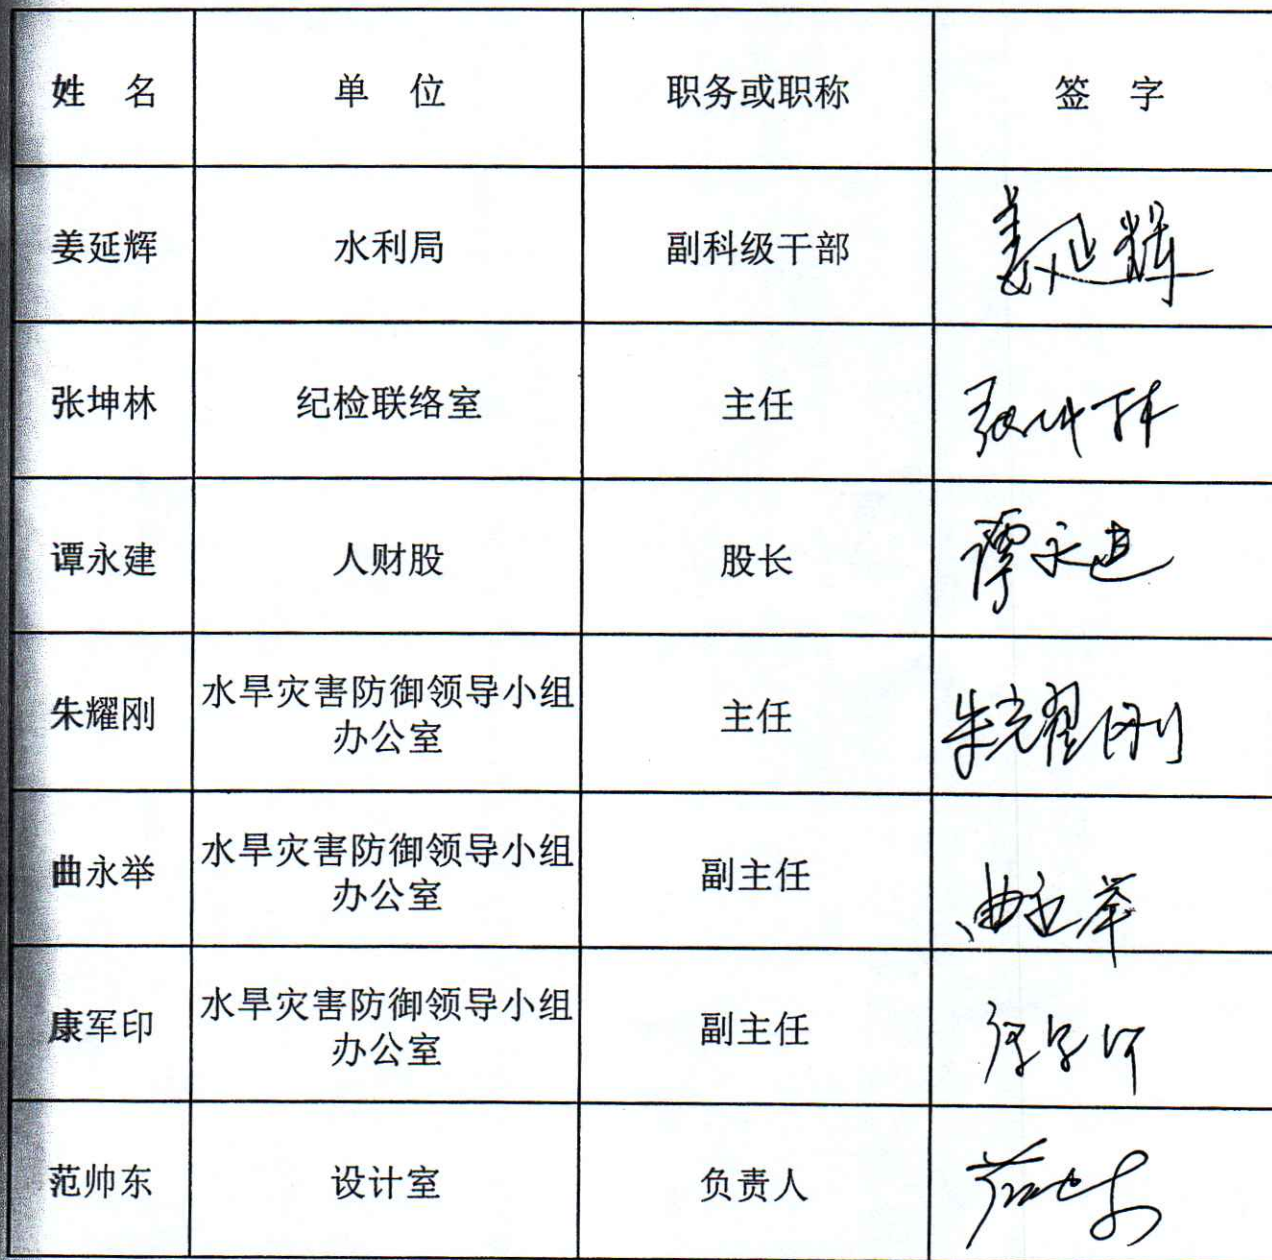 姓 名 单 位 职务或职称 签 字
姜延辉 水利局 副科级干部 姜延辉
张坤林 纪检联络室 主任 张坤林
谭永建 人财股 股长 谭永建
朱耀刚 水旱灾害防御领导小组
办公室 主任 朱耀刚
曲永举 水旱灾害防御领导小组
办公室 副主任 曲永举
康军印 水旱灾害防御领导小组
办公室 副主任 康军印
范帅东 设计室 负责人 范帅东